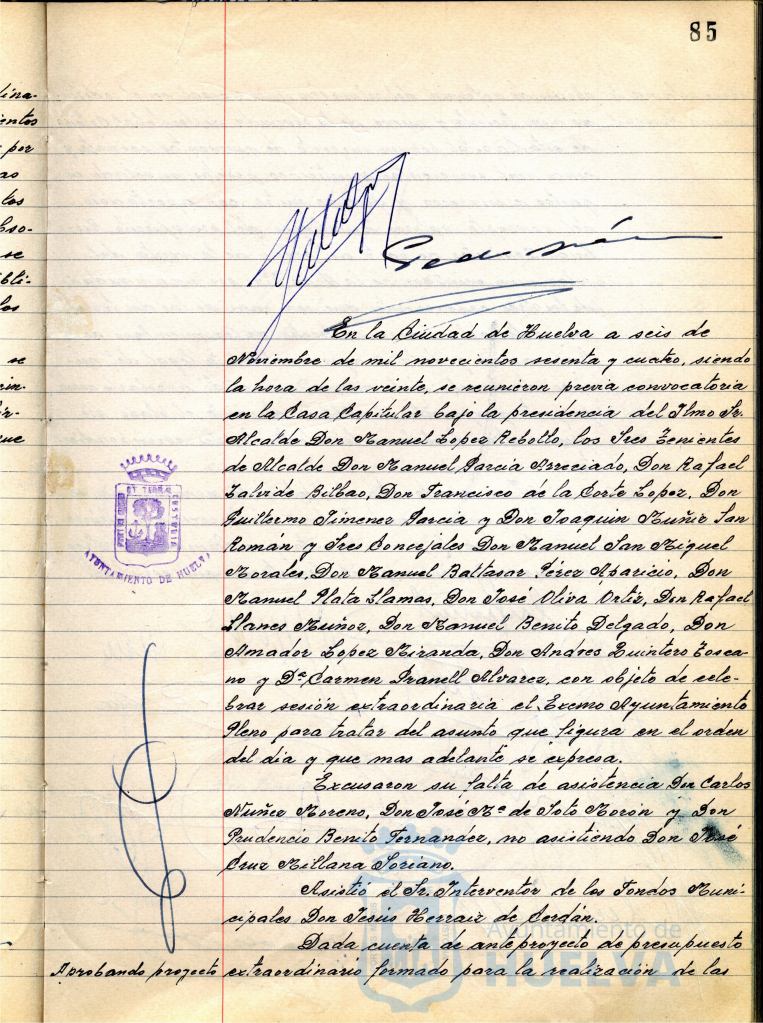 85
ina-
entos
por
los
se
los
se
que
En la Ciudad de Huelva a seis de
Noviembre de mil novecientos sesenta y cuatro, siendo
la hora de las veinte, se reunieron previa convocatoria
en la Casa Capitular bajo la presidencia del Ilmo Sr.
Alcalde Don Manuel Lopez Rebollo, los Sres Tenientes
de Alcalde Don Manuel Garcia Arreciado, Don Rafael
Zalvide Bilbao, Don Francisco de la Corte Lopez, Don
Guillermo Jimenez Garcia y Don Joaquin Muñiz San
Román y Sres Concejales Don Manuel San Miguel
Morales, Don Manuel Baltasar Pérez Aparicio, Don
Manuel Plata Llamas, Don José Oliva Ortiz, Don Rafael
Llanes Muñoz, Don Manuel Benito Delgado, Don
Amador Lopez Miranda, Don Andres Quintero Tosca-
no y Dª Carmen Pranell Alvarez, con objeto de cele-
brar sesión extraordinaria el Excmo Ayuntamiento
Pleno para tratar del asunto que figura en el orden
del día y que mas adelante se expresa.
Excusaron su falta de asistencia Don Carlos
Nuñez Moreno, Don José Mª de Soto Morón y Don
Prudencio Benito Fernandez, no asistiendo Don José
Cruz Millana Soriano.
Asistió el Sr. Interventor de los Fondos Muni-
cipales Don Jesús Herraiz de Cerdán.
Dada cuenta de anteproyecto de presupuesto
Aprobando proyecto extraordinario formado para la realización de las
AYUNTAMIENTO DE HUELVA
Ayuntamiento de
HUELVA